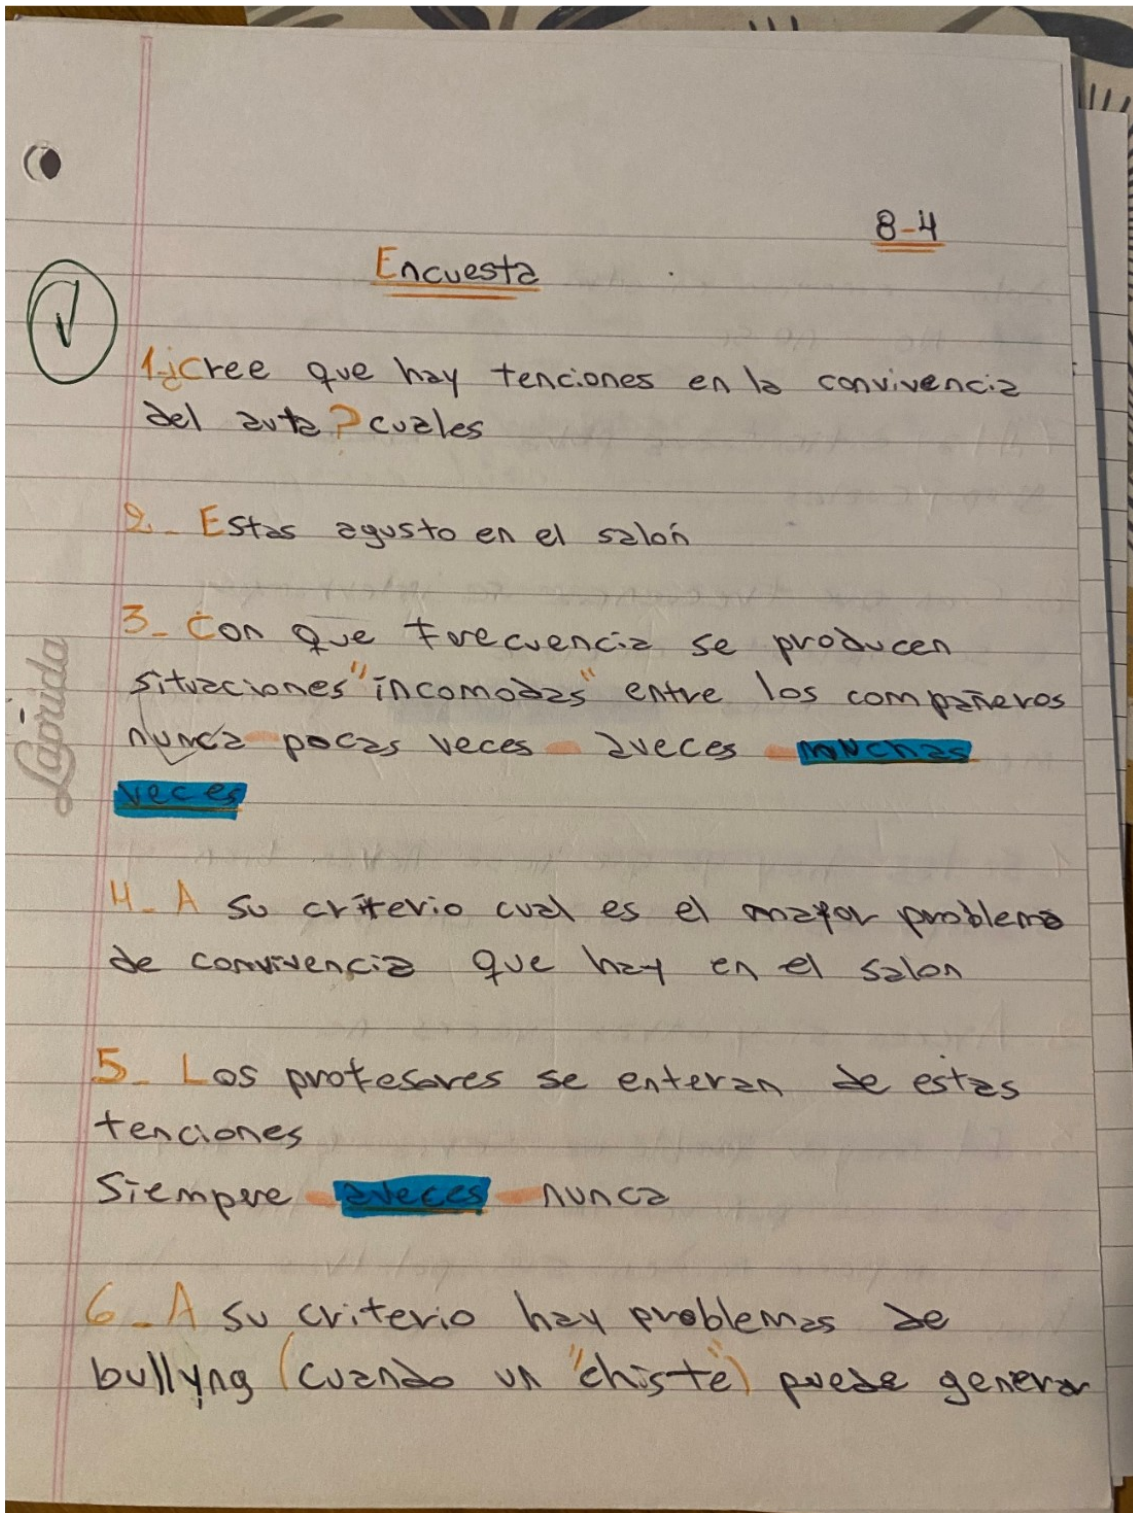 8-4
Encuesta
1-¿Cree que hay tenciones en la convivencia
del aula? cuales
2- Estas agusto en el salón
3- Con que frecuencia se producen
situaciones "incomodas" entre los compañeros
nunca - pocas veces - aveces - muchas
veces
Laprida
4- A su criterio cual es el mayor problema
de convivencia que hay en el salon
5- Los profesores se enteran de estas
tenciones
Siempre - aveces - nunca
6- A su criterio hay problemas de
bullyng (cuando un "chiste") puede generar